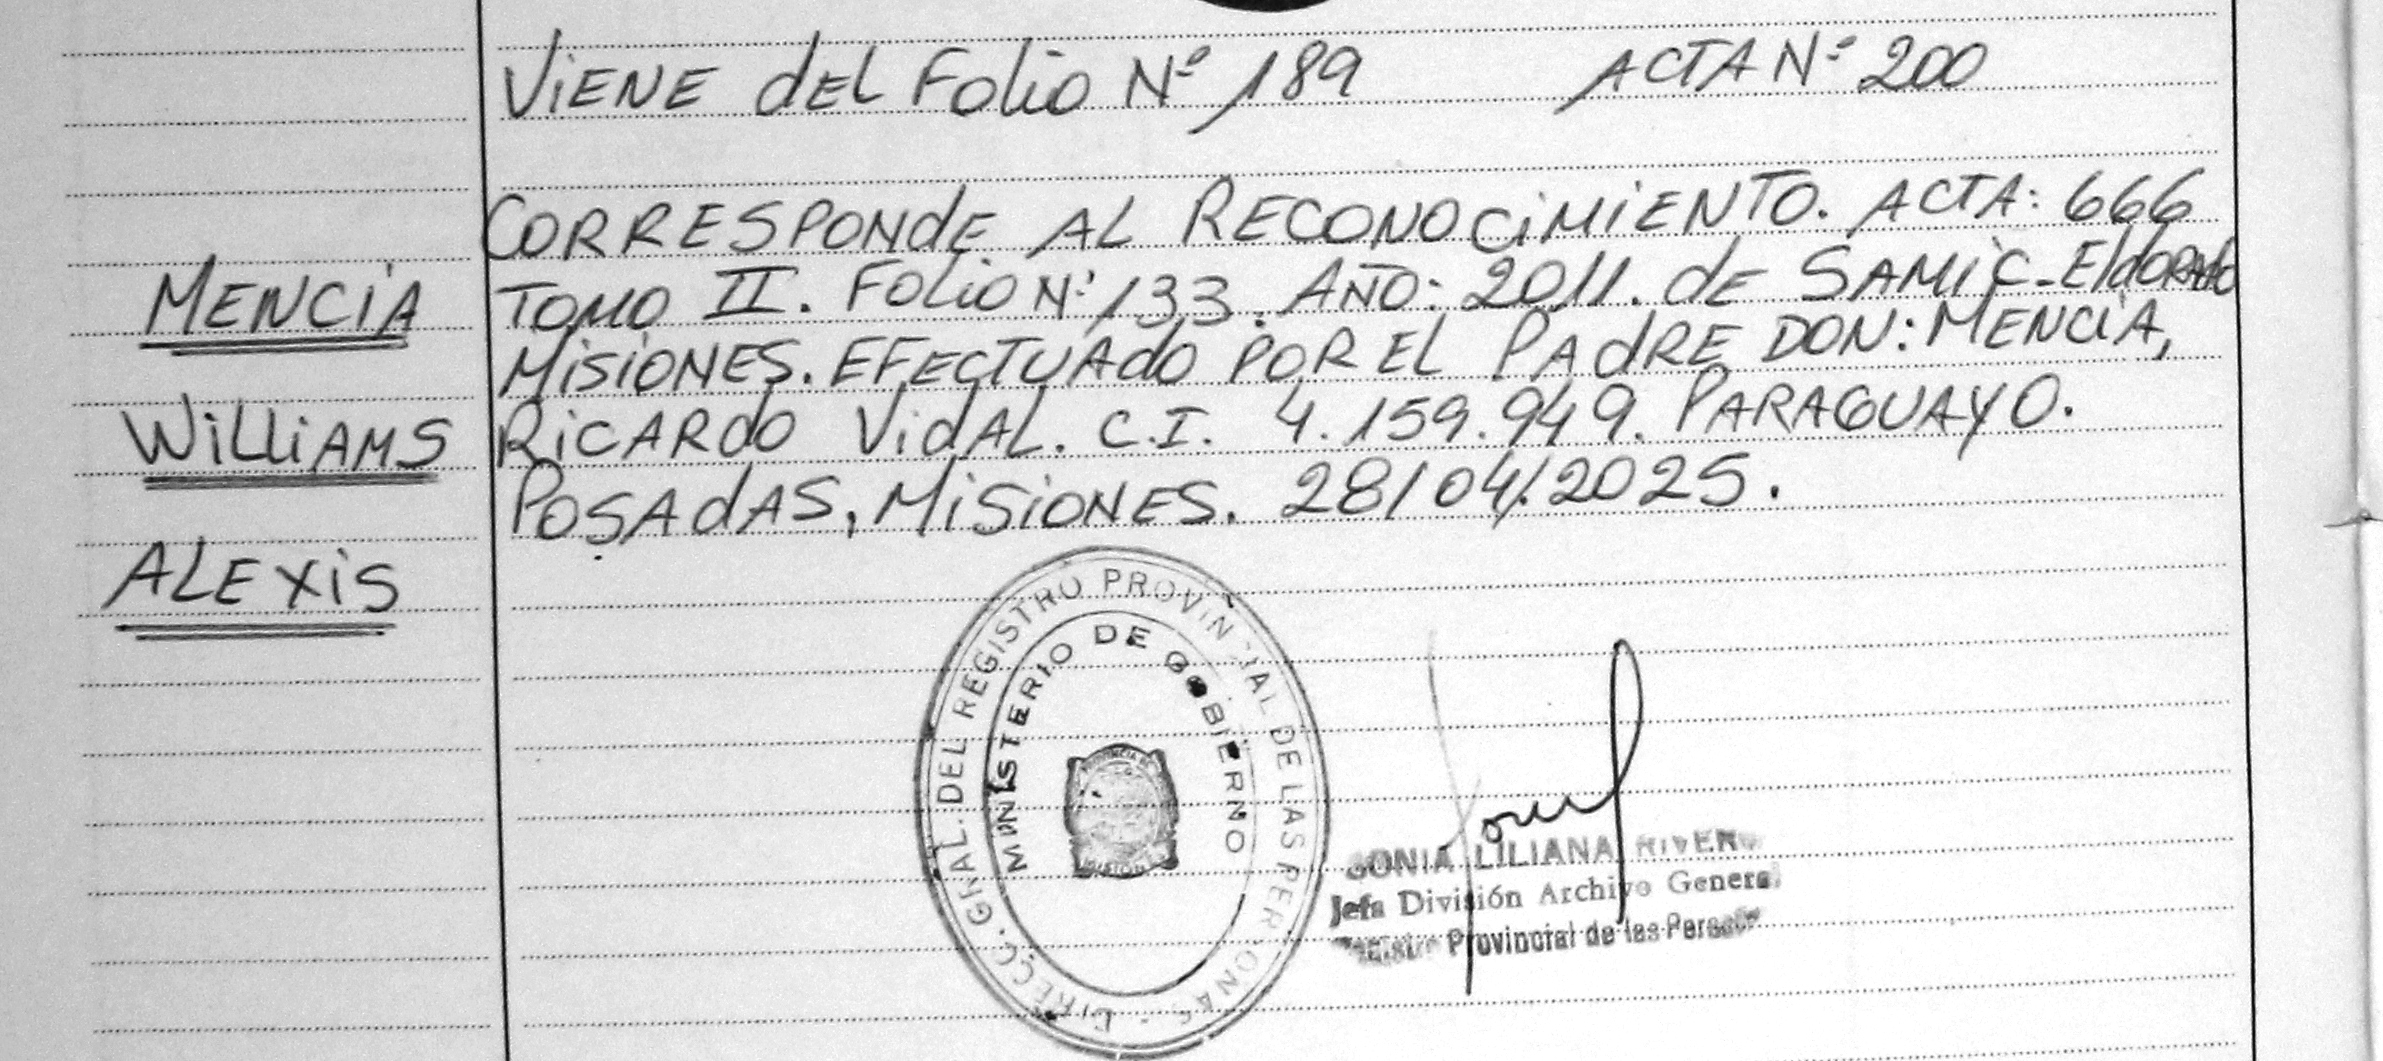 ViENE dEL Folio Nº 189 ACTA Nº 200
CORRESPONdE AL RECONOCiMiENTO. ACTA: 666
MENCiA
TOMO II. FoLio Nº 133. AÑO: 2011. dE SAMiC-EldoRAdo
MiSiONES. EFECTUAdo POR EL PAdRE DON: MENCiA,
WiLLiAMS
RiCARdo VidAL. C.I. 4.159.949. PARAGUAYO.
POSAdAS, MiSiONES. 28/04/2025.
ALEXiS
DIRECC. GRAL. DEL REGISTRO PROVINCIAL DE LAS PERSONAS
MINISTERIO DE GOBIERNO
MISIONES
SONIA LILIANA RIVERO
Jefa División Archivo General
Registro Provincial de las Personas